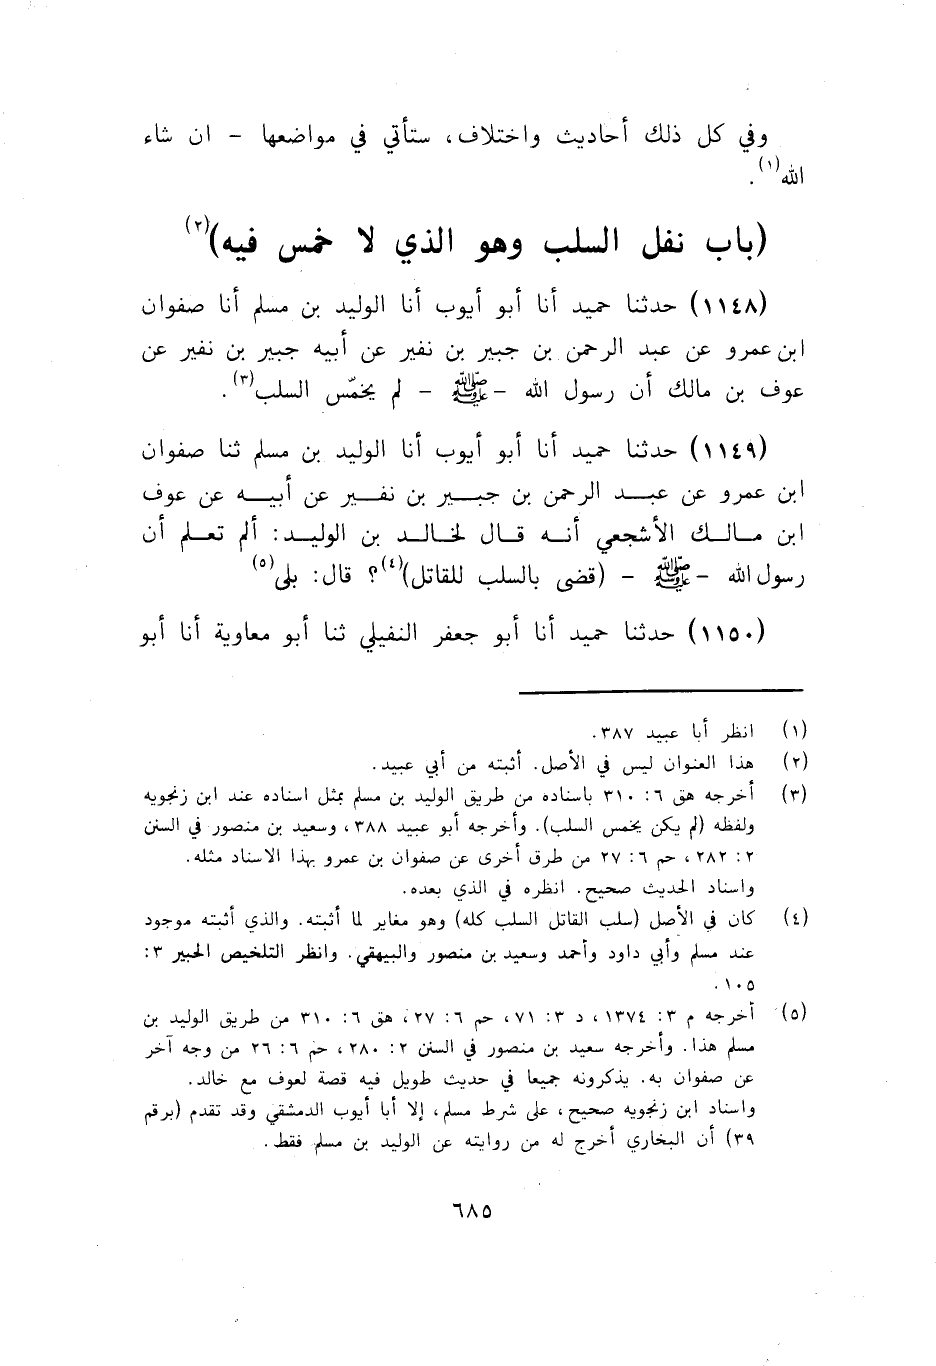 وفي كل ذلك أحاديث واختلاف، ستأتي في مواضعها - ان شاء
الله(١).
(باب نفل السلب وهو الذي لا خمس فيه)(٢)
(١١٤٨) حدثنا حميد أنا أبو أيوب أنا الوليد بن مسلم أنا صفوان
ابن عمرو عن عبد الرحمن بن جبير بن نفير عن أبيه جبير بن نفير عن
عوف بن مالك أن رسول الله - ﷺ - لم يخمّس السلب(٣).
(١١٤٩) حدثنا حميد أنا أبو أيوب أنا الوليد بن مسلم ثنا صفوان
ابن عمرو عن عبد الرحمن بن جبير بن نفير عن أبيه عن عوف
ابن مالك الأشجعي أنه قال لخالد بن الوليد: ألم تعلم أن
رسول الله - ﷺ - (قضى بالسلب للقاتل)(٤)؟ قال: بلى(٥)
(١١٥٠) حدثنا حميد أنا أبو جعفر النفيلي ثنا أبو معاوية أنا أبو
(١) انظر أبا عبيد ٣٨٧.
(٢) هذا العنوان ليس في الأصل. أثبته من أبي عبيد.
(٣) أخرجه هق ٦: ٣١٠ باسناده من طريق الوليد بن مسلم بمثل اسناده عند ابن زنجويه
ولفظه (لم يكن يخمس السلب). وأخرجه أبو عبيد ٣٨٨، وسعيد بن منصور في السنن
٢: ٢٨٢، حم ٦: ٢٧ من طرق أخرى عن صفوان بن عمرو بهذا الاسناد مثله.
واسناد الحديث صحيح. انظره في الذي بعده.
(٤) كان في الأصل (سلب القاتل السلب كله) وهو مغاير لما أثبته. والذي أثبته موجود
عند مسلم وأبي داود وأحمد وسعيد بن منصور والبيهقي. وانظر التلخيص الحبير ٣:
١٠٥.
(٥) أخرجه م ٣: ١٣٧٤، د ٣: ٧١، حم ٦: ٢٧، هق ٦: ٣١٠ من طريق الوليد بن
مسلم هذا. وأخرجه سعيد بن منصور في السنن ٢: ٢٨٠، حم ٦: ٢٦ من وجه آخر
عن صفوان به. يذكرونه جميعا في حديث طويل فيه قصة لعوف مع خالد.
واسناد ابن زنجويه صحيح، على شرط مسلم، إلا أبا أيوب الدمشقي وقد تقدم (برقم
٣٩) أن البخاري أخرج له من روايته عن الوليد بن مسلم فقط.
٦٨٥